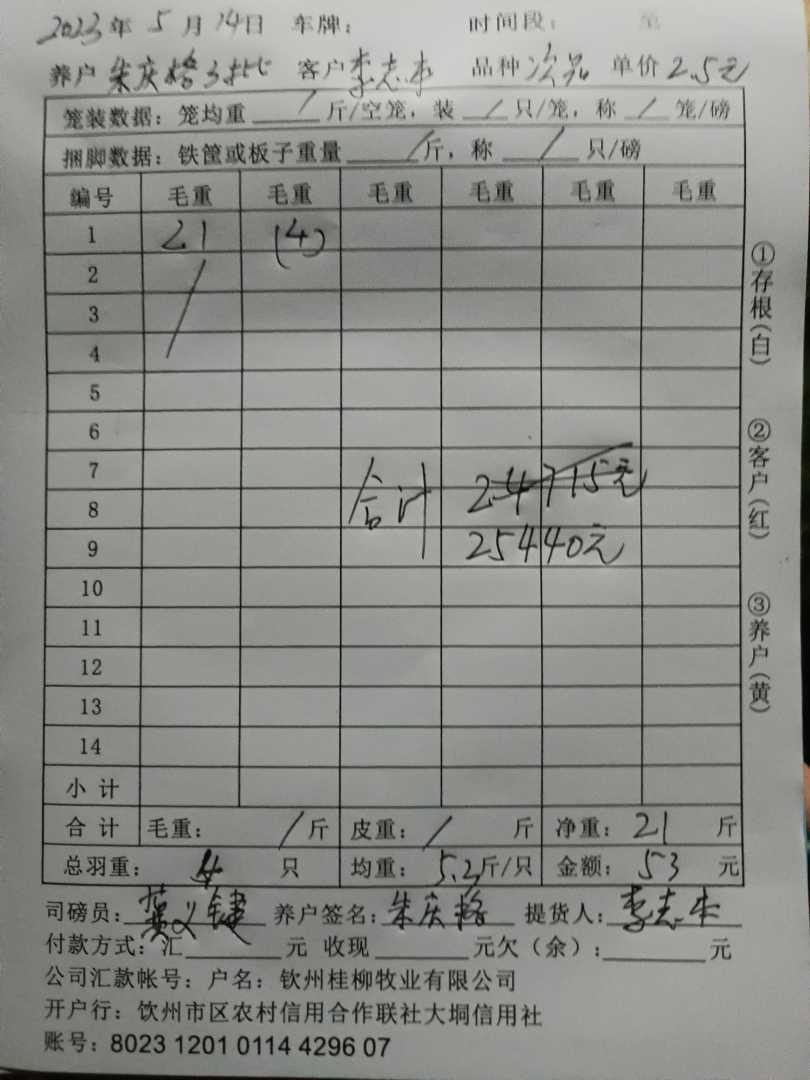 2023年5月14日 车牌： 时间段： 至
养户 朱庆格3批 客户 李志本 品种 次品 单价 2.5元
笼装数据：笼均重 / 斤/空笼，装 / 只/笼，称 / 笼/磅
捆脚数据：铁筐或板子重量 / 斤，称 / 只/磅
编号 毛重 毛重 毛重 毛重 毛重 毛重
1 21 (4)
2
3
4
5
6
7
8 合计 24715元
9 25440元
10
11
12
13
14
小计
合计 毛重： / 斤 皮重： / 斤 净重：21 斤
总羽重： 4 只 均重：5.2斤/只 金额：53 元
司磅员： 养户签名：朱庆格 提货人：李志本
付款方式：汇 元 收现 元欠（余）： 元
公司汇款帐号：户名：钦州桂柳牧业有限公司
开户行：饮州市区农村信用合作联社大垌信用社
账号：8023 1201 0114 4296 07
①存根（白）
②客户（红）
③养户（黄）